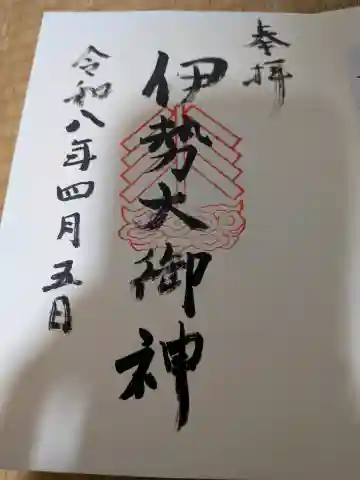 奉拝
伊勢大御神
令和八年四月五日